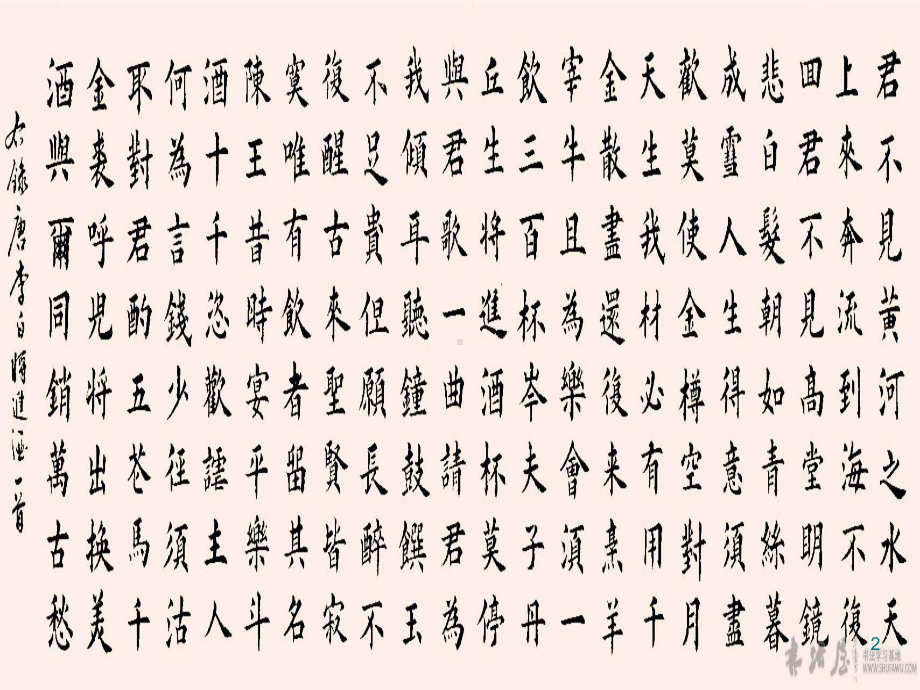 君不見黄河之水天
上來奔流到海不復
囬君不見高堂明鏡
悲白髮朝如青絲暮
成雪人生得意須盡
歡莫使金樽空對月
天生我材必有用千
金散盡還復来烹羊
宰牛且為樂會須一
飲三百杯岑夫子丹
丘生將進酒杯莫停
與君歌一曲請君為
我傾耳聽鐘鼓饌玉
不足貴但願長醉不
復醒古來聖賢皆寂
寞唯有飲者留其名
陳王昔時宴平樂斗
酒十千恣歡謔主人
何為言錢少徑須沽
取對君酌五花馬千
金裘呼兒將出换美
酒與爾同銷萬古愁
右錄唐李白將進酒一首
2
书法屋
书法学习基地
WWW.SHUFAWU.COM